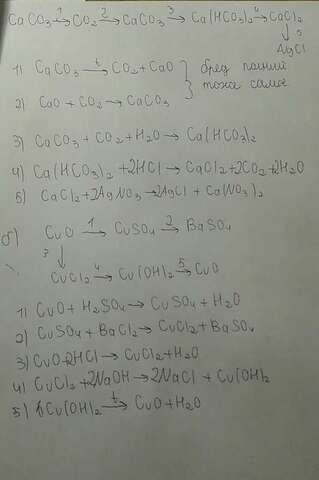 CaCO₃ →¹ CO₂ →² CaCO₃ →³ Ca(HCO₃)₂ →⁴ CaCl₂
↓ 5
AgCl
1) CaCO₃ →ᵗ CO₂ + CaO } бред
2) CaO + CO₂ → CaCO₃ } тоже самое
3) CaCO₃ + CO₂ + H₂O → Ca(HCO₃)₂
4) Ca(HCO₃)₂ + 2HCl → CaCl₂ + 2CO₂ + 2H₂O
5) CaCl₂ + 2AgNO₃ → 2AgCl + Ca(NO₃)₂
б) CuO →¹ CuSO₄ →² BaSO₄
3 ↓
CuCl₂ →⁴ Cu(OH)₂ →⁵ CuO
1) CuO + H₂SO₄ → CuSO₄ + H₂O
2) CuSO₄ + BaCl₂ → CuCl₂ + BaSO₄
3) CuO + 2HCl → CuCl₂ + H₂O
4) CuCl₂ + 2NaOH → 2NaCl + Cu(OH)₂
5) Cu(OH)₂ →ᵗ CuO + H₂O